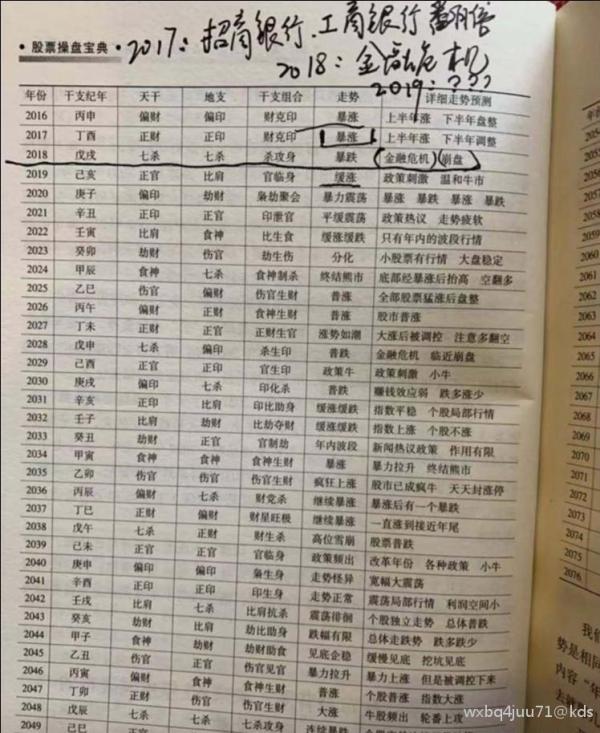 2017：招商银行、工商银行翻倍
2018：金融危机
2019：???
股票操盘宝典
年份 干支纪年 天干 地支 干支组合 走势 详细走势预测
2016 丙申 偏财 偏印 财克印 暴涨 上半年涨 下半年盘整
2017 丁酉 正财 正印 财克印 暴涨 上半年涨 下半年调整
2018 戊戌 七杀 七杀 杀攻身 暴跌 金融危机 崩盘
2019 己亥 正官 比肩 官临身 缓涨 政策刺激 温和牛市
2020 庚子 偏印 劫财 枭劫聚会 暴力震荡 暴涨 暴跌 暴涨 暴跌
2021 辛丑 正印 正官 印泄官 平缓震荡 政策热议 走势疲软
2022 壬寅 比肩 食神 比生食 缓涨缓跌 只有年内的波段行情
2023 癸卯 劫财 伤官 劫生伤 分化 小股票有行情 大盘稳定
2024 甲辰 食神 七杀 食神制杀 终结熊市 底部经暴涨后抬高 空翻多
2025 乙巳 伤官 偏财 伤官生财 普涨 全部股票猛涨后盘整
2026 丙午 偏财 正财 食神生财 普涨 股市普涨
2027 丁未 正财 正官 正财生官 涨势如潮 大涨后被调控 注意多翻空
2028 戊申 七杀 偏印 杀生印 普跌 金融危机 临近崩盘
2029 己酉 正官 正印 官生印 政策牛 政策刺激 小牛
2030 庚戌 偏印 七杀 印化杀 普跌 赚钱效应弱 跌多涨少
2031 辛亥 正印 比肩 印比助身 缓涨缓跌 指数平稳 个股局部行情
2032 壬子 比肩 劫财 比劫夺财 缓涨缓跌 指数上涨 个股不涨
2033 癸丑 劫财 正官 官制劫 年内波段 新闻热议政策 作用有限
2034 甲寅 食神 食神 食神生财 暴涨 暴力拉升 终结熊市
2035 乙卯 伤官 伤官 伤官生财 疯狂上涨 股市已成疯牛 天天封涨停
2036 丙辰 偏财 七杀 财党杀 继续暴涨 暴涨后有一个暴跌
2037 丁巳 正财 偏财 财星旺极 继续暴涨 一直涨到接近年尾
2038 戊午 七杀 正财 财生杀 高位雪崩 股票普跌
2039 己未 正官 正官 官临身 政策频出 改革年份 各种政策 小牛
2040 庚申 偏印 偏印 枭生身 走势怪异 宽幅大震荡
2041 辛酉 正印 正印 印生身 走势正常 震荡局部行情 利润空间小
2042 壬戌 比肩 七杀 比肩抗杀 震荡徘徊 个股独立走势 总体普跌
2043 癸亥 劫财 比肩 劫比助身 跌幅有限 总体走跌势 跌多跌少
2044 甲子 食神 劫财 劫财助食 见底企稳 缓慢见底 挖坑见底
2045 乙丑 伤官 正官 伤官见官 暴力拉升 暴力上涨 但是被调控下来
2046 丙寅 偏财 食神 食神生财 普涨 个股普涨 指数大涨
2047 丁卯 正财 伤官 伤官生财 大涨 牛股频出 轮番上攻
2048 戊辰 七杀
2049 己巳
2076
我们
势是相同
内容“年
wxbq4juu71@kds